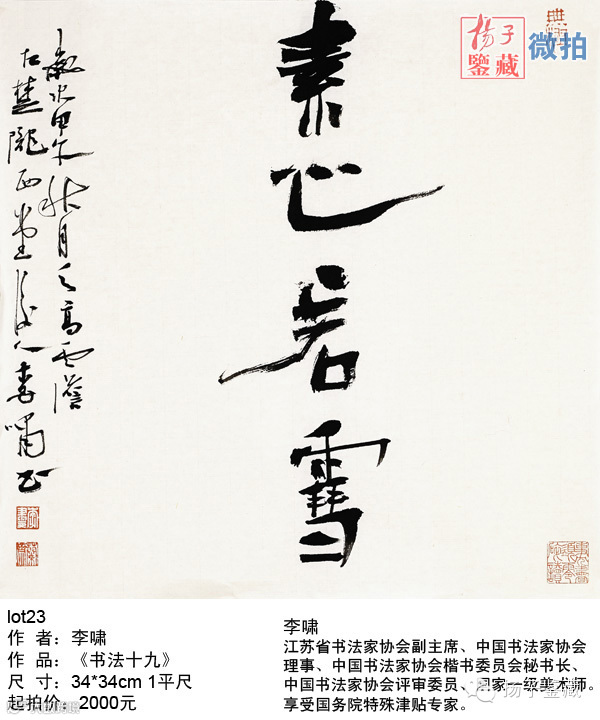 素心若雪
歲次甲午秋月之高雲
李啸书
扬子
鉴藏
微拍
lot23
作 者：李啸
作 品：《书法十九》
尺 寸：34*34cm 1平尺
起拍价：2000元
李啸
江苏省书法家协会副主席、中国书法家协会
理事、中国书法家协会楷书委员会秘书长、
中国书法家协会评审委员、国家一级美术师。
享受国务院特殊津贴专家。
扬子鉴藏